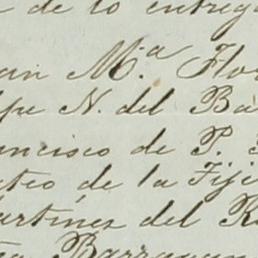 de lo entreg
an M.ª Flo
pe N. del Ba
ancisco de P.
teo de la Fiji
artinez del R
Barragan